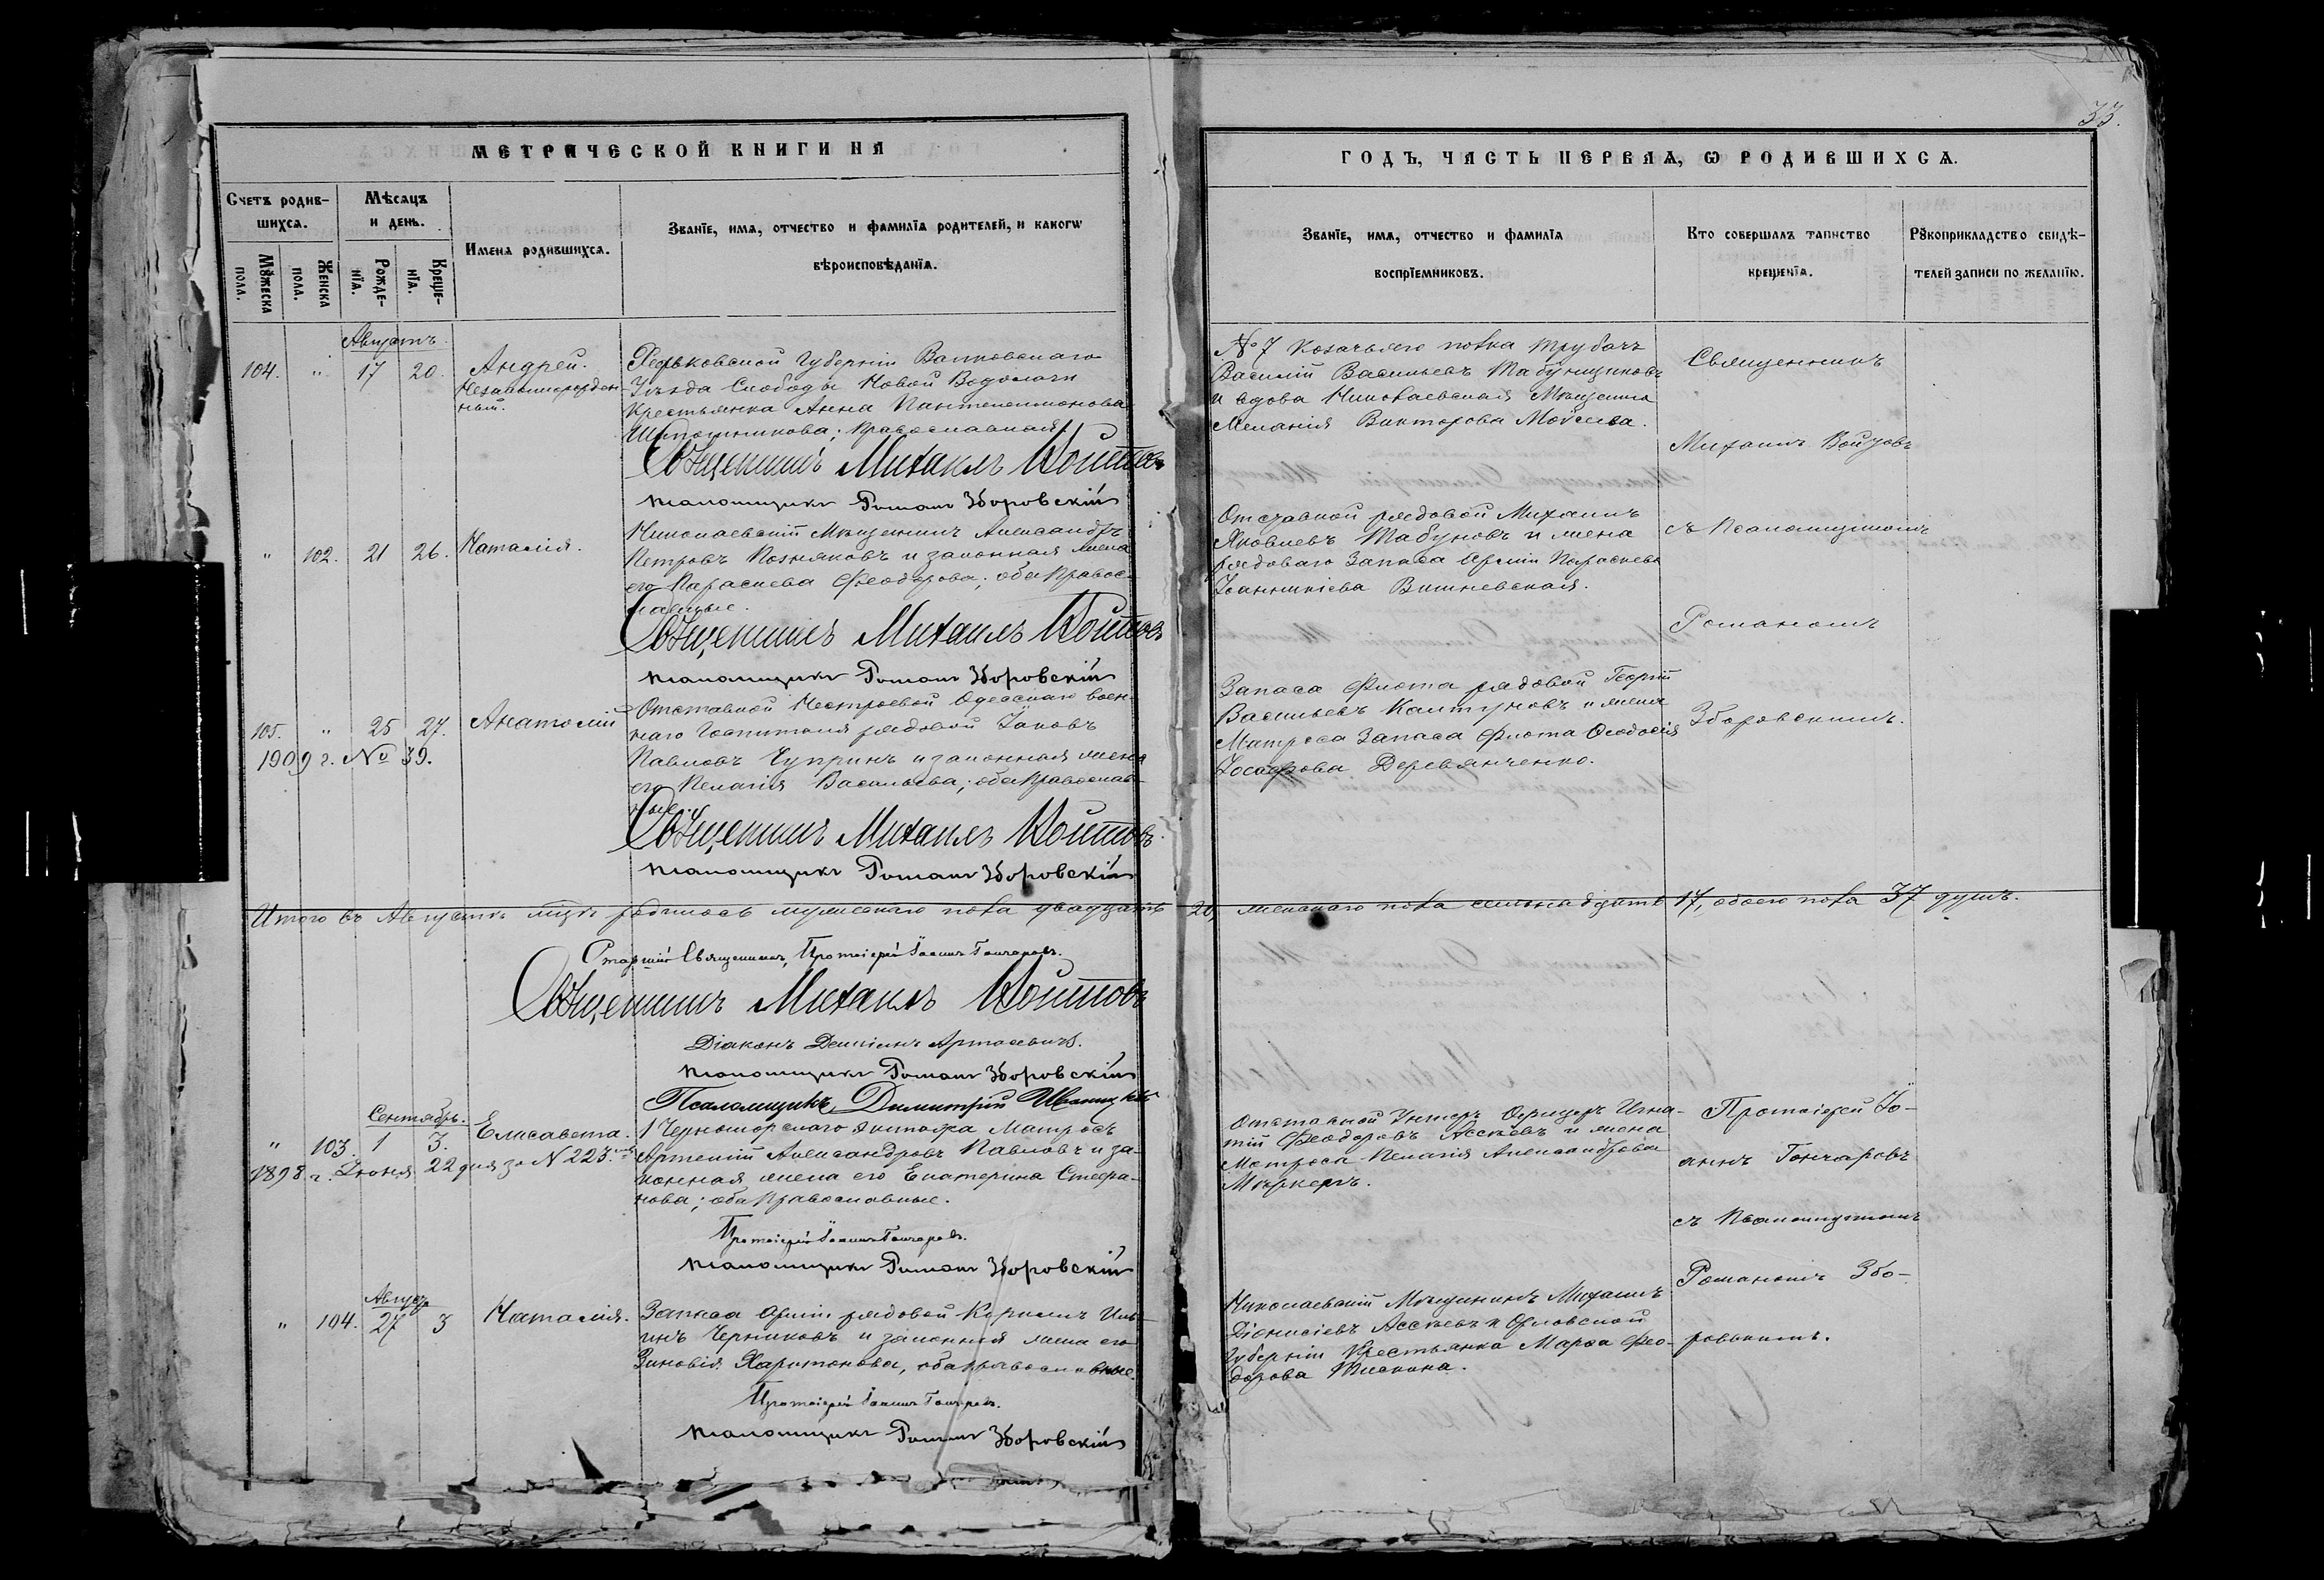 33.
МЕТРИЧЕСКОЙ КНИГИ НА
ГОДЪ, ЧАСТЬ ПЕРВАЯ, Ѡ РОДИВШИХСѦ.
Счетъ родив-
шихсѧ.
Мѣсяцъ
и день.
Имена родившихсѧ.
Званїе, имѧ, отчество и фамилїѧ родителей, и какогѡ
вѣроисповѣданїѧ.
Мꙋжеска
пола.
Женска
пола.
Рожде-
нїѧ.
Креще-
нїѧ.
Званїе, имѧ, отчество и фамилїѧ
воспрїемниковъ.
Кто совершалъ таинство
крещенїѧ.
Рꙋкоприкладство свидѣ-
телей записи по желанїю.
Августъ
104. " 17 20. Андрей.
Незаконнорожден-
ный.
Харьковской Губерніи Валковскаго
Уѣзда Слободы Новой Водолаги
Крестьянка Анна Пантелеимонова
православная.
Священникъ Михаилъ Войтовъ
Псаломщикъ Романъ Зборовскій
№ 7 Козачьяго полка трубачъ
Василій Васильевъ Табунщиковъ
и вдова Николаевская Мѣщанка
Меланія Викторова Моисеева.
Священникъ
Михаилъ Войтовъ
" 102. 21 26. Наталія.
Николаевскій Мѣщанинъ Александръ
Петровъ Позняковъ и законная жена
его Параскева Феодорова; оба Правос-
лавные.
Священникъ Михаилъ Войтовъ
Псаломщикъ Романъ Зборовскій
Отставной рядовой Михаилъ
Яковлевъ Табуновъ и жена
рядоваго Запаса Арміи Параскева
Іоанникіева Вишневская.
съ Псаломщикомъ
Романомъ
105. " 25 27. Анатолій
1909 г. № 39.
Отставной Нестроевой Одесскаго воен-
наго Госпиталя рядовой Іаковъ
Павловъ Чупринъ и законная жена
его Пелагія Васильева; оба Православ-
ные.
Священникъ Михаилъ Войтовъ
Псаломщикъ Романъ Зборовскій
Запаса Флота рядовой Георгій
Васильевъ Калтуновъ и жена
Матроса Запаса Флота Феодосія
Іосифова Деревянченко.
Зборовскимъ.
Итого въ Августѣ мцѣ родилось мужескаго пола двадцать 20, женскаго пола семьнадцать 17, обоего пола 37 душъ.
Старшій Священникъ, Протоіерей Іоаннъ Гончаровъ.
Священникъ Михаилъ Войтовъ
Діаконъ Даміанъ
Псаломщикъ Романъ Зборовскій
Псаломщикъ Димитрій
Сентябрь.
" 103. 1 3. Елисавета.
1898 г. Іюня 22 дня за N 223.
1 Черноморскаго экипажа Матросъ
Артемій Александровъ Павловъ и за-
конная жена его Екатерина Стефа-
нова; оба Православные.
Протоіерей Іоаннъ Гончаровъ.
Псаломщикъ Романъ Зборовскій
Отставной Унтеръ Офицеръ Игна-
тій Феодоровъ Ассѣевъ и жена
Матроса Пелагія Александрова
Протоіерей Іо-
аннъ Гончаровъ
съ Псаломщикомъ
Августа
" 104. 27 3 Наталія.
Запаса Арміи рядовой Кириллъ Иль-
инъ Черниковъ и законная жена его
Зиновія Харитонова, оба православные.
Протоіерей Іоаннъ Гончаровъ.
Псаломщикъ Романъ Зборовскій
Николаевскій Мѣщанинъ Михаилъ
Діонисіевъ Ассѣевъ и Орловской
Губерніи Крестьянка Марѳа Фео-
дорова
Романомъ Збо-
ровскимъ.